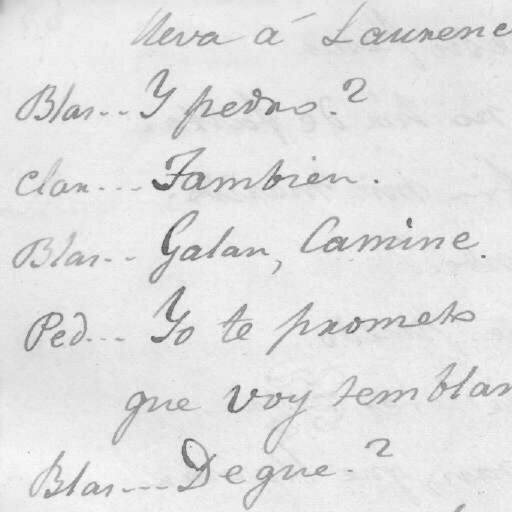 lleva á Laurenc
Blas... Y pedro.?
Clar... Tambien.
Blas... Galan, Camine.
Ped... Yo te prometo
que voy temblan
Blas... De que.?